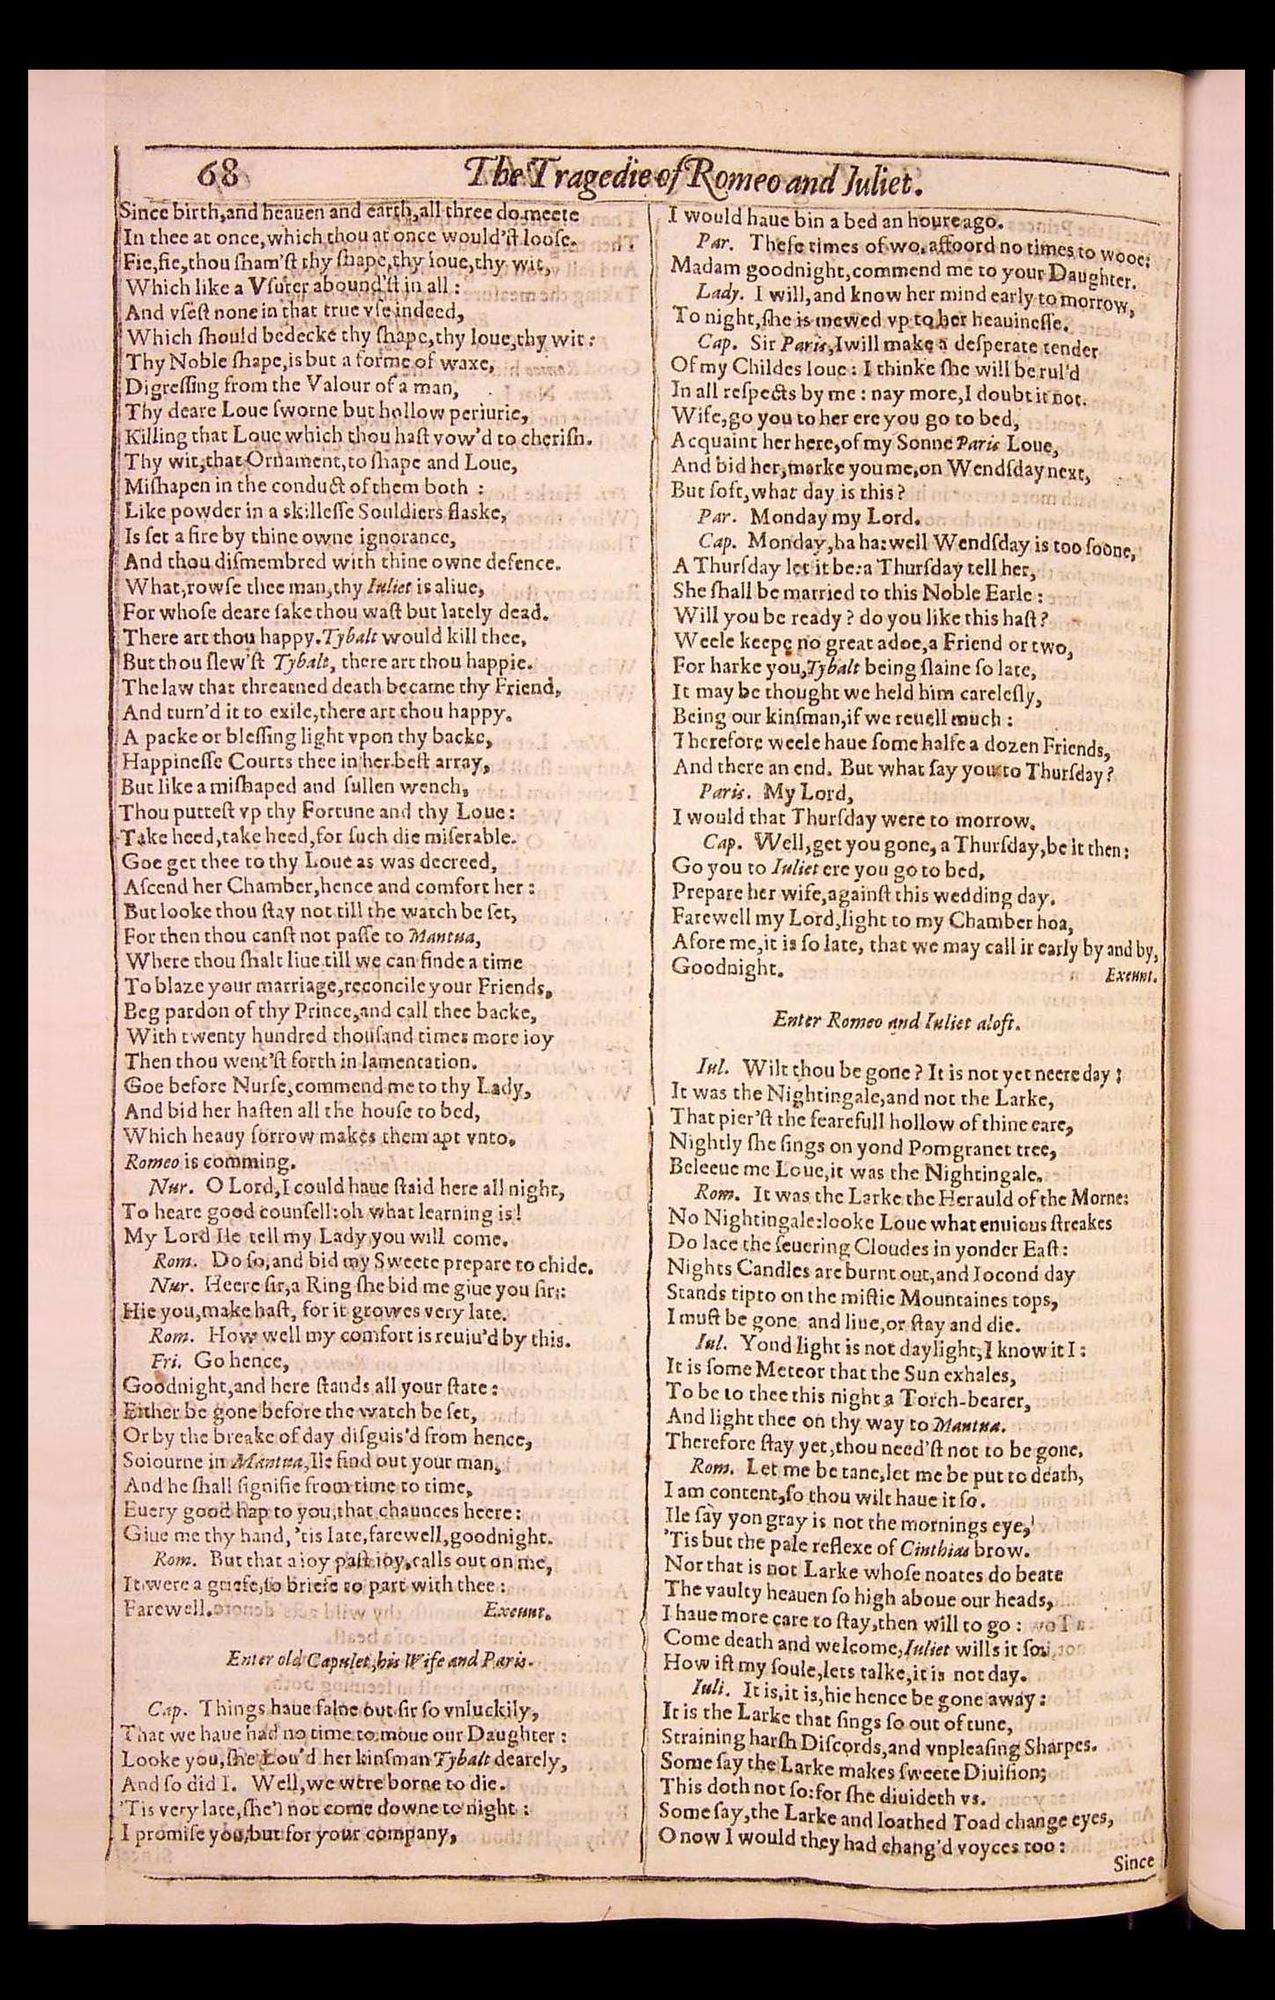 68
The Tragedie of Romeo and Juliet.
Since birth,and heauen and earth,all three do meete
In thee at once,which thou at once would'ſt looſe.
Fie,fie,thou ſham'ſt thy ſhape,thy loue,thy wit,
Which like a Vſurer abound'ſt in all :
And vſeſt none in that true vſe indeed,
Which ſhould bedecke thy ſhape,thy loue,thy wit :
Thy Noble ſhape,is but a forme of waxe,
Digreſſing from the Valour of a man,
Thy deare Loue ſworne but hollow periurie,
Killing that Loue which thou haſt vow'd to cheriſh.
Thy wit,that Ornament,to ſhape and Loue,
Miſhapen in the conduct of them both :
Like powder in a skilleſſe Souldiers flaske,
Is ſet a fire by thine owne ignorance,
And thou diſmembred with thine owne defence.
What,rowſe thee man,thy Iuliet is aliue,
For whoſe deare ſake thou waſt but lately dead.
There art thou happy.Tybalt would kill thee,
But thou ſlew'ſt Tybalt, there art thou happie.
The law that threatned death became thy Friend,
And turn'd it to exile,there art thou happy.
A packe or bleſſing light vpon thy backe,
Happineſſe Courts thee in her beſt array,
But like a miſhaped and ſullen wench,
Thou putteſt vp thy Fortune and thy Loue :
Take heed,take heed,for ſuch die miſerable.
Goe get thee to thy Loue as was decreed,
Aſcend her Chamber,hence and comfort her :
But looke thou ſtay not till the watch be ſet,
For then thou canſt not paſſe to Mantua,
Where thou ſhalt liue till we can finde a time
To blaze your marriage,reconcile your Friends,
Beg pardon of thy Prince,and call thee backe,
With twenty hundred thouſand times more ioy
Then thou went'ſt forth in lamentation.
Goe before Nurſe,commend me to thy Lady,
And bid her haſten all the houſe to bed,
Which heauy ſorrow makes them apt vnto.
Romeo is comming.
Nur. O Lord,I could haue ſtaid here all night,
To heare good counſell:oh what learning is!
My Lord Ile tell my Lady you will come.
Rom. Do ſo,and bid my Sweete prepare to chide.
Nur. Heere ſir,a Ring ſhe bid me giue you ſir:
Hie you,make haſt, for it growes very late.
Rom. How well my comfort is reuiu'd by this.
Fri. Go hence,
Goodnight,and here ſtands all your ſtate :
Either be gone before the watch be ſet,
Or by the breake of day diſguis'd from hence,
Soiourne in Mantua,Ile find out your man,
And he ſhall ſignifie from time to time,
Euery good hap to you,that chaunces heere :
Giue me thy hand, 'tis late,farewell,goodnight.
Rom. But that a ioy paſt ioy,calls out on me,
It were a griefe,ſo briefe to part with thee :
Farewell. Exeunt.
Enter old Capulet,his Wife and Paris.
Cap. Things haue falne out ſir ſo vnluckily,
That we haue had no time to moue our Daughter :
Looke you,ſhe Lou'd her kinſman Tybalt dearely,
And ſo did I. Well,we were borne to die.
'Tis very late,ſhe'l not come downe to night :
I promiſe you,but for your company,
I would haue bin a bed an houre ago.
Par. Theſe times of wo,affoord no times to wooe:
Madam goodnight,commend me to your Daughter.
Lady. I will,and know her mind early to morrow,
To night,ſhe is mewed vp to her heauineſſe.
Cap. Sir Paris,I will make a deſperate tender
Of my Childes loue : I thinke ſhe will be rul'd
In all reſpects by me : nay more,I doubt it not.
Wife,go you to her ere you go to bed,
Acquaint her here,of my Sonne Paris Loue,
And bid her,marke you me,on Wendſday next,
But ſoft,what day is this ?
Par. Monday my Lord.
Cap. Monday,ha ha: well Wendſday is too ſoone,
A Thurſday let it be:a Thurſday tell her,
She ſhall be married to this Noble Earle :
Will you be ready ? do you like this haſt ?
Weele keepe no great adoe,a Friend or two,
For harke you,Tybalt being ſlaine ſo late,
It may be thought we held him careleſly,
Being our kinſman,if we reuell much :
Therefore weele haue ſome halfe a dozen Friends,
And there an end. But what ſay you to Thurſday ?
Paris. My Lord,
I would that Thurſday were to morrow.
Cap. Well,get you gone, a Thurſday,be it then :
Go you to Iuliet ere you go to bed,
Prepare her wife,againſt this wedding day.
Farewell my Lord,light to my Chamber hoa,
Afore me,it is ſo late, that we may call it early by and by,
Goodnight. Exeunt.
Enter Romeo and Iuliet aloft.
Iul. Wilt thou be gone ? It is not yet neere day :
It was the Nightingale,and not the Larke,
That pier'ſt the fearefull hollow of thine eare,
Nightly ſhe ſings on yond Pomgranet tree,
Beleeue me Loue,it was the Nightingale.
Rom. It was the Larke the Herauld of the Morne:
No Nightingale:looke Loue what enuious ſtreakes
Do lace the ſeuering Cloudes in yonder Eaſt :
Nights Candles are burnt out,and Iocond day
Stands tipto on the miſtie Mountaines tops,
I muſt be gone and liue,or ſtay and die.
Iul. Yond light is not daylight,I know it I :
It is ſome Meteor that the Sun exhales,
To be to thee this night a Torch-bearer,
And light thee on thy way to Mantua.
Therefore ſtay yet,thou need'ſt not to be gone,
Rom. Let me be tane,let me be put to death,
I am content,ſo thou wilt haue it ſo.
Ile ſay yon gray is not the mornings eye,
'Tis but the pale reflexe of Cinthias brow.
Nor that is not Larke whoſe noates do beate
The vaulty heauen ſo high aboue our heads,
I haue more care to ſtay,then will to go :
Come death and welcome,Iuliet wills it ſo.
How iſt my ſoule,lets talke,it is not day.
Iuli. It is,it is,hie hence be gone away :
It is the Larke that ſings ſo out of tune,
Straining harſh Diſcords,and vnpleaſing Sharpes.
Some ſay the Larke makes ſweete Diuiſion;
This doth not ſo:for ſhe diuideth vs.
Some ſay,the Larke and loathed Toad change eyes,
O now I would they had chang'd voyces too :
Since